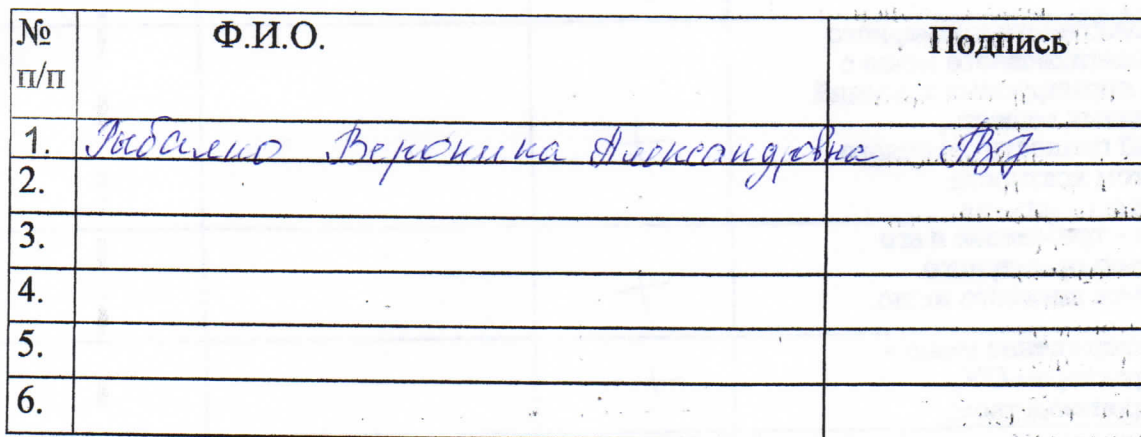 № п/п Ф.И.О. Подпись
1. Рыбалко Вероника Александровна
2.
3.
4.
5.
6.